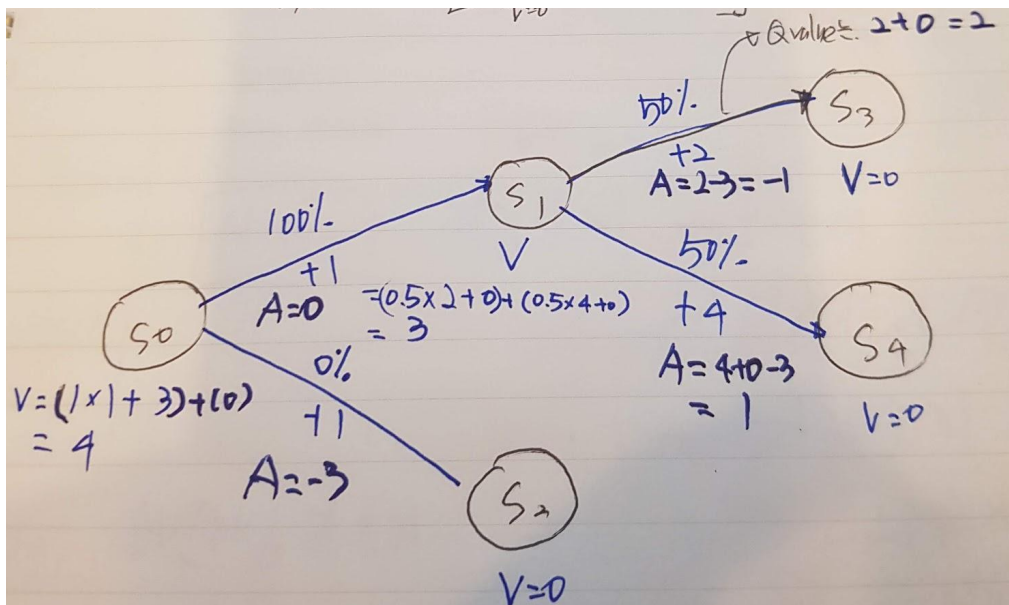 V=0
Q value: 2+0=2
50%
S3
+2
A=2-3=-1
V=0
S1
100%
+1
A=0
V
=(0.5×2+0)+(0.5×4+0)
= 3
50%
+4
S4
A=4+0-3
= 1
V=0
S0
V=(1×1+3)+(0)
= 4
0%
+1
A=-3
S2
V=0